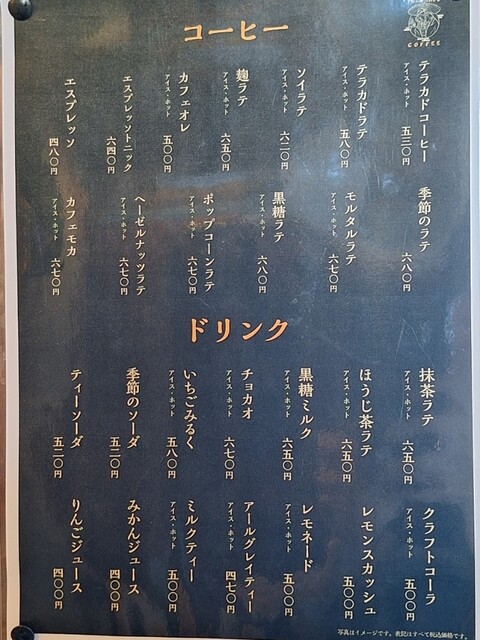 COFFEE
コーヒー
テラカドコーヒー
アイス・ホット
五三〇円
テラカドラテ
アイス・ホット
五八〇円
ソイラテ
アイス・ホット
六二〇円
麹ラテ
アイス・ホット
六五〇円
カフェオレ
アイス・ホット
五〇〇円
エスプレッソトニック
六四〇円
エスプレッソ
四八〇円
季節のラテ
六八〇円
モルタルラテ
アイス・ホット
六七〇円
黒糖ラテ
アイス・ホット
六八〇円
ポップコーンラテ
アイス・ホット
六七〇円
ヘーゼルナッツラテ
アイス・ホット
六七〇円
カフェモカ
アイス・ホット
六七〇円
ドリンク
抹茶ラテ
アイス・ホット
六五〇円
ほうじ茶ラテ
アイス・ホット
六五〇円
黒糖ミルク
アイス・ホット
六五〇円
チョカオ
アイス・ホット
六七〇円
いちごみるく
アイス・ホット
五八〇円
季節のソーダ
五二〇円
ティーソーダ
五二〇円
クラフトコーラ
アイス・ホット
五〇〇円
レモンスカッシュ
五〇〇円
レモネード
アイス・ホット
五〇〇円
アールグレイティー
アイス・ホット
四七〇円
ミルクティー
アイス・ホット
五〇〇円
みかんジュース
四〇〇円
りんごジュース
四〇〇円
写真はイメージです。表記はすべて税込価格です。